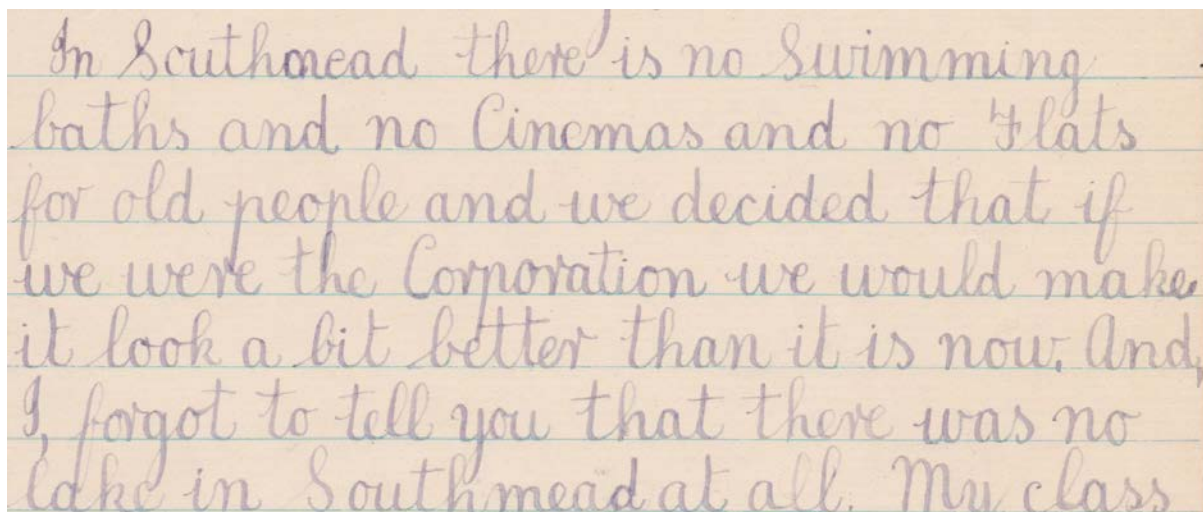 In Southmead there is no Swimming
baths and no Cinemas and no Flats
for old people and we decided that if
we were the Corporation we would make
it look a bit better than it is now. And,
I, forgot to tell you that there was no
lake in Southmead at all. My class